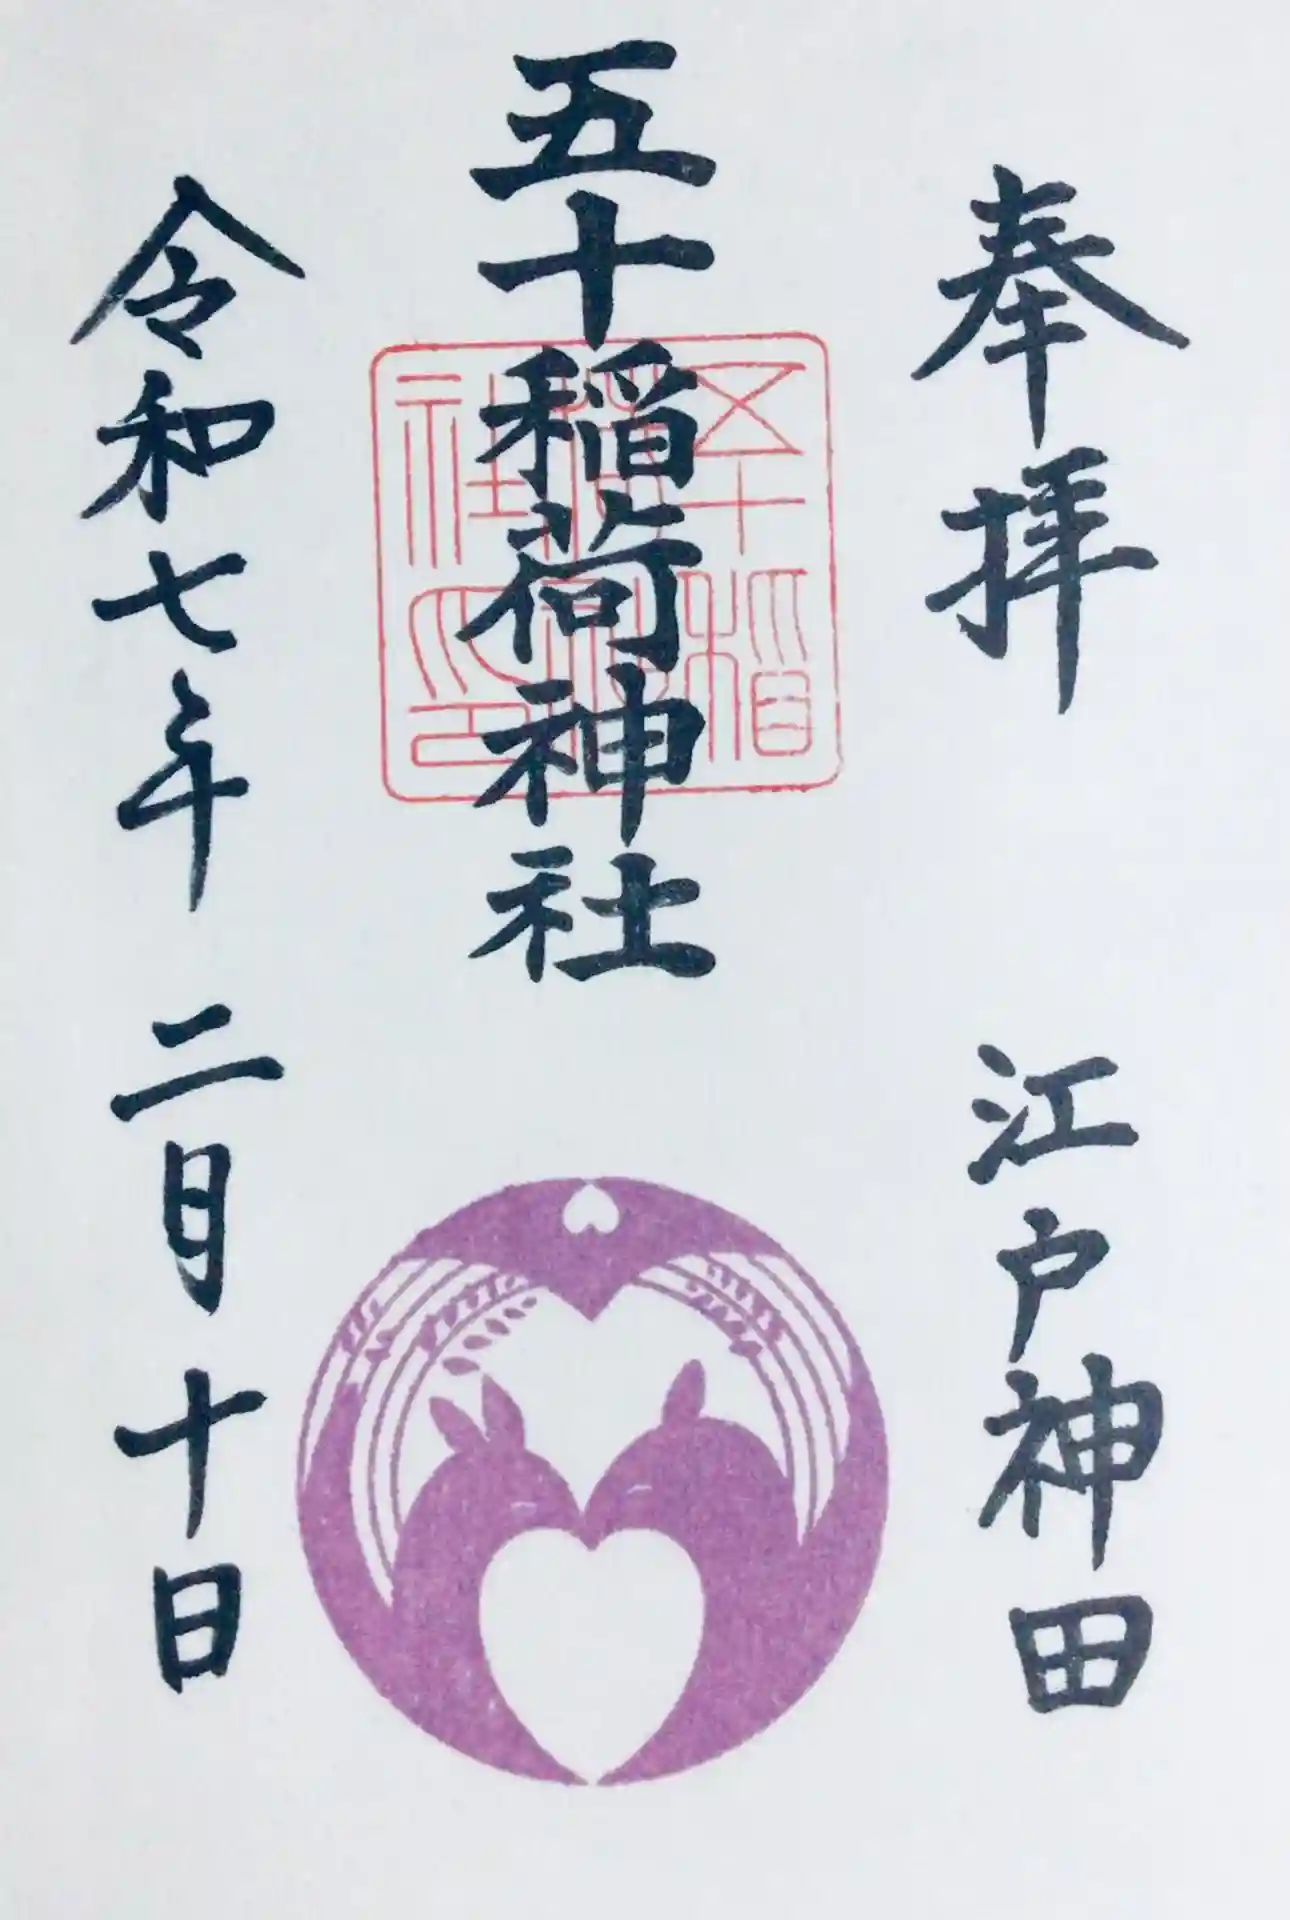 奉拝
江戸神田
五十稲荷神社
五十稲荷神社之印
令和七年
二月十日